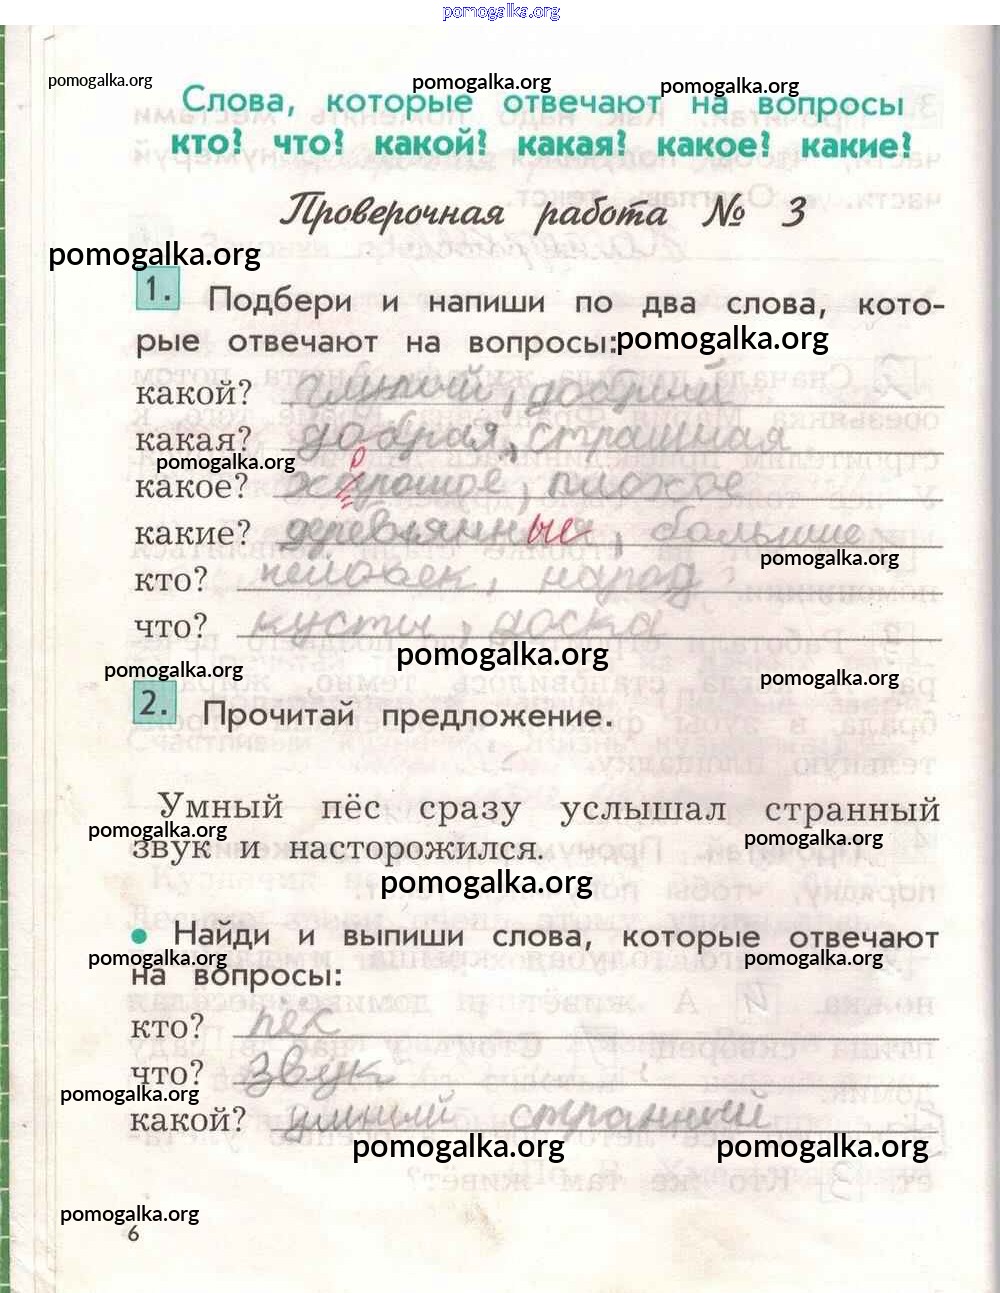 pomogalka.org
pomogalka.org pomogalka.org pomogalka.org
Слова, которые отвечают на вопросы
кто? что? какой? какая? какое? какие?
Проверочная работа № 3
pomogalka.org
1. Подбери и напиши по два слова, кото-
рые отвечают на вопросы: pomogalka.org
какой? глупый, добрый
какая? добрая, страшная
pomogalka.org
какое? хорошое, плохое
какие? деревянные, большие
pomogalka.org
кто? человек, народ
что? кусты, доска
pomogalka.org pomogalka.org pomogalka.org
2. Прочитай предложение.
Умный пёс сразу услышал странный
pomogalka.org pomogalka.org
звук и насторожился.
pomogalka.org
• Найди и выпиши слова, которые отвечают
pomogalka.org pomogalka.org
на вопросы:
кто? пёс
что? звук
pomogalka.org pomogalka.org
какой? умный странный
pomogalka.org pomogalka.org
pomogalka.org
6